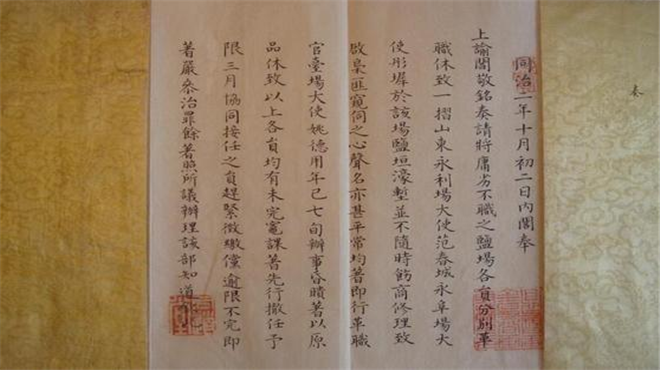 同治二年十月初二日內閣奉
上諭閻敬銘奏請將庸劣不職之鹽場各員分別革
職休致一摺山東永利場大使范春城永阜場大
使彤墀於該場鹽垣濠塹並不隨時飭商修理致
啟梟匪窺伺之心聲名亦甚平常均著即行革職
官臺場大使姚德用年已七旬辦事昏瞶著以原
品休致以上各員均有未完竈課著先行撤任予
限三月協同接任之員趕緊徵繳儻逾限不完即
著嚴參治罪餘著照所議辦理該部知道
奏